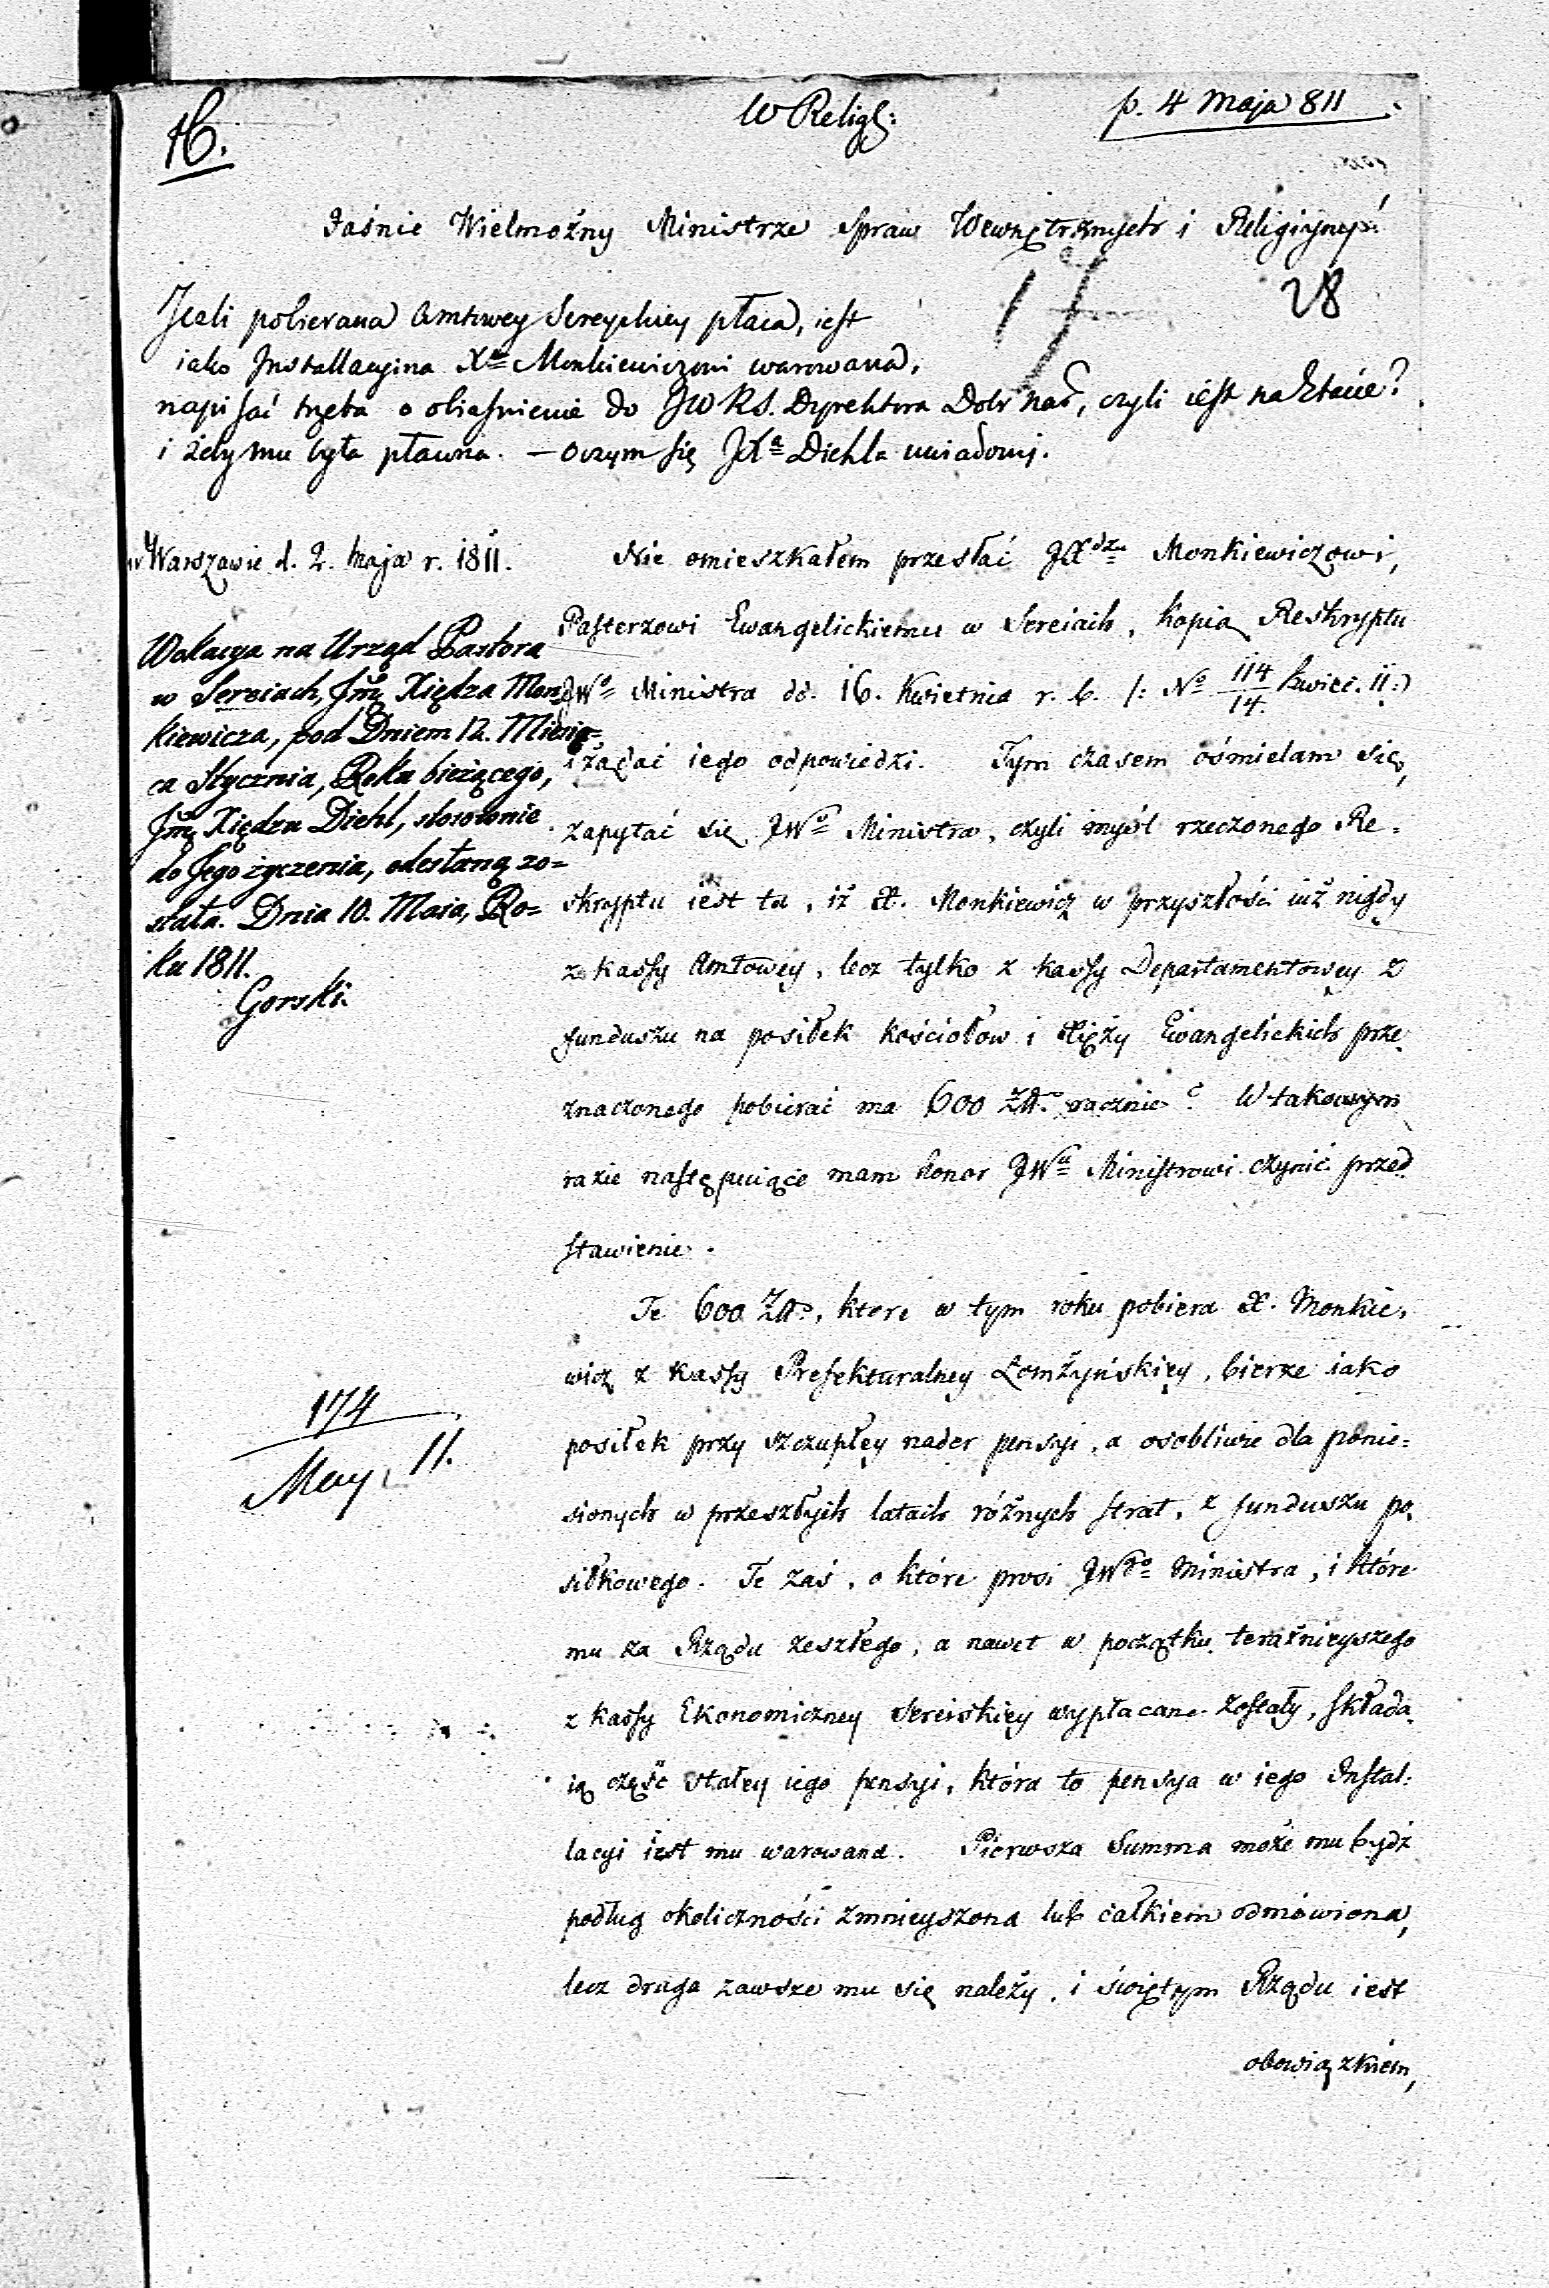 16.
W Relig:
p. 4 Maja 811
Jaśnie Wielmożny Ministrze Spraw Wewnętrznych i Religiynych
17
28
Jeżeli pobierana Amtowey Sereyskiey płaca, iest
iako Installacyina Xu Monkiewiczowi warowana,
napisać trzeba o obiaśnienie do JW RS. Dyrektora Dobr Nar, czyli iest na Etacie?
i żeby mu była płatna. — O czym się JXa Diehla uwiadomi.
w Warszawie d. 2. Maja r. 1811.
Wokacya na Urząd Pastora
w Sereiach, Jmę Xiędza Mon-
kiewicza, pod Dniem 12. Miesią-
ca Stycznia, Roku bieżącego,
Jmę Xiędzu Diehl, stosownie
do Jego życzenia, odesłaną zo-
stała. Dnia 10. Maia, Ro-
ku 1811.
Gorski.
174
May 11.
Nie omieszkałem przesłać JXdzu Monkiewiczowi,
Pasterzowi Ewangelickiemu w Sereiach, kopią Reskryptu
JWo Ministra dd. 16. Kwietnia r. b. /: No 114/14. Kwiec. 11:)
i żądać iego odpowiedzi. Tym czasem ośmielam się,
zapytać się JWo Ministra, czyli myśl rzeczonego Re-
skryptu iest ta, iż X. Monkiewicz w przyszłości iuż nigdy
z kassy Amtowey, lecz tylko z kassy Departamentowey z
funduszu na posiłek kościołow i Xięży Ewangelickich prze
znaczonego pobierać ma 600 Złł. rocznie? W takowym
razie następuiące mam honor JWu Ministrowi czynić przed
stawienie.
Te 600 Złł., które w tym roku pobiera X. Monkie-
wicz z kassy Prefekturalney Łomżyńskiey, bierze iako
posiłek przy szczupłey nader pensyi, a osobliwie dla ponie-
sionych w przeszłych latach różnych strat, z funduszu po
siłkowego. Te zaś, o które prosi JWgo Ministra, i które
mu za Rządu zeszłego, a nawet w początku teraźnieyszego
z kassy Ekonomiczney Sereiskiey wypłacane zostały, składa
ią część stałey iego pensyi, która to pensya w iego Instal-
lacyi iest mu warowana. Pierwsza Summa może mu bydź
podług okoliczności zmnieyszona lub całkiem odmówiona,
lecz druga zawsze mu się należy, i świętym Rządu iest
obowiązkiem,